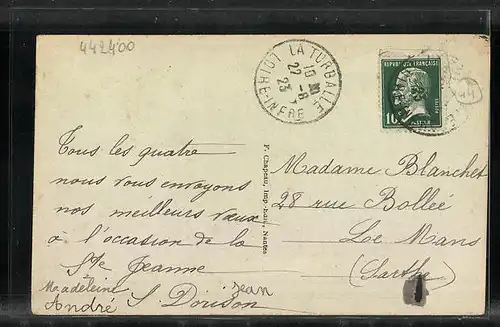 442400
LA TURBALLE
LOIRE-INFRE
10 27 -8 23
REPUBLIQUE FRANÇAISE
10
Tous les quatre
nous vous envoyons
nos meilleurs vœux
à l'occasion de la
Ste Jeanne
Madeleine jean
André S. Douson
F. Chapeau, Imp.-Edit., Nantes
Madame Blanchet
28 rue Bollée
Le Mans
(Sarthe)